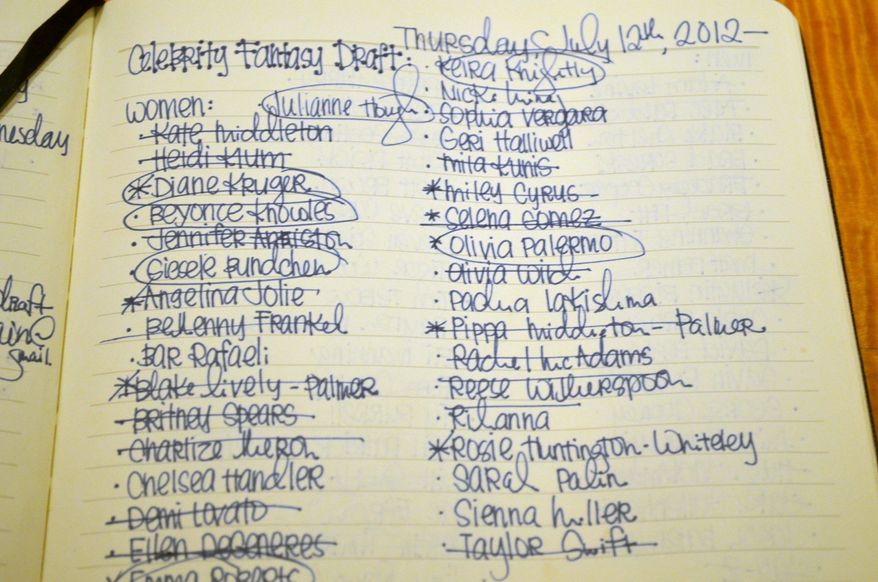 Thursday, July 12th, 2012-
Celebrity Fantasy Draft:
women:
Julianne Hough
Kate Middleton
Heidi Klum
* Diane Kruger
Beyonce Knowles
Jennifer Anniston
Giesele Bundchen
* Angelina Jolie
Bethenny Frankel
Bar Rafaeli
* Blake Lively - Palmer
Britney Spears
Charlize Theron
Chelsea Handler
Demi Lovato
Ellen DeGeneres
Emma Roberts
Keira Knightly
Nicki Minaj
Sophia Vergara
Geri Halliwell
Mila Kunis
* Miley Cyrus
* Selena Gomez
* Olivia Palermo
Olivia Wild
Padma Lakishma
* Pippa Middleton - Palmer
Rachel McAdams
Reese Witherspoon
Rihanna
* Rosie Huntington-Whiteley
Sarah Palin
Sienna Miller
Taylor Swift
nesday
draft
gmail.